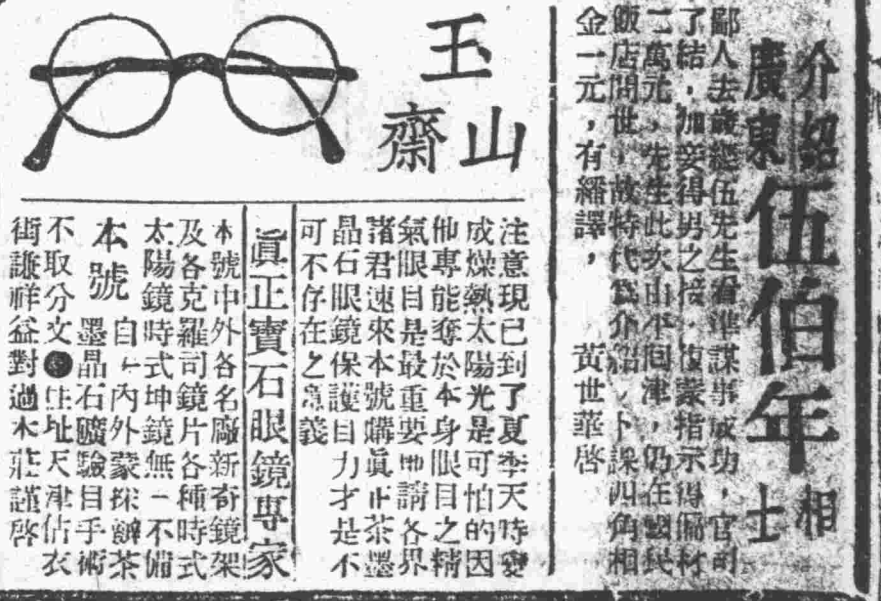 介紹
廣東
伍伯年
相士
鄙人去歲經伍先生看準謀事成功，官司
了結，加妾得男之接，復蒙指示得偏材
二萬元，先生此次由平回津，仍在國民
飯店問世，故特代爲介紹，卜課四角相
金一元，有繙譯，　黃世華啓
玉山齋
注意現已到了夏季天時變
成燥熱太陽光是可怕的因
他專能奪於本身眼目之精
氣眼目是最重要地請各界
諸君速來本號購眞正茶墨
晶石眼鏡保護目力才是不
可不存在之意義
眞正寶石眼鏡專家
本號中外各名廠新奇鏡架
及各克羅司鏡片各種時式
太陽鏡時式坤鏡無一不備
本號
自內外蒙採辦茶
墨晶石礦驗目手術
不取分文●住址天津估衣
街謙祥益對過木莊謹啓